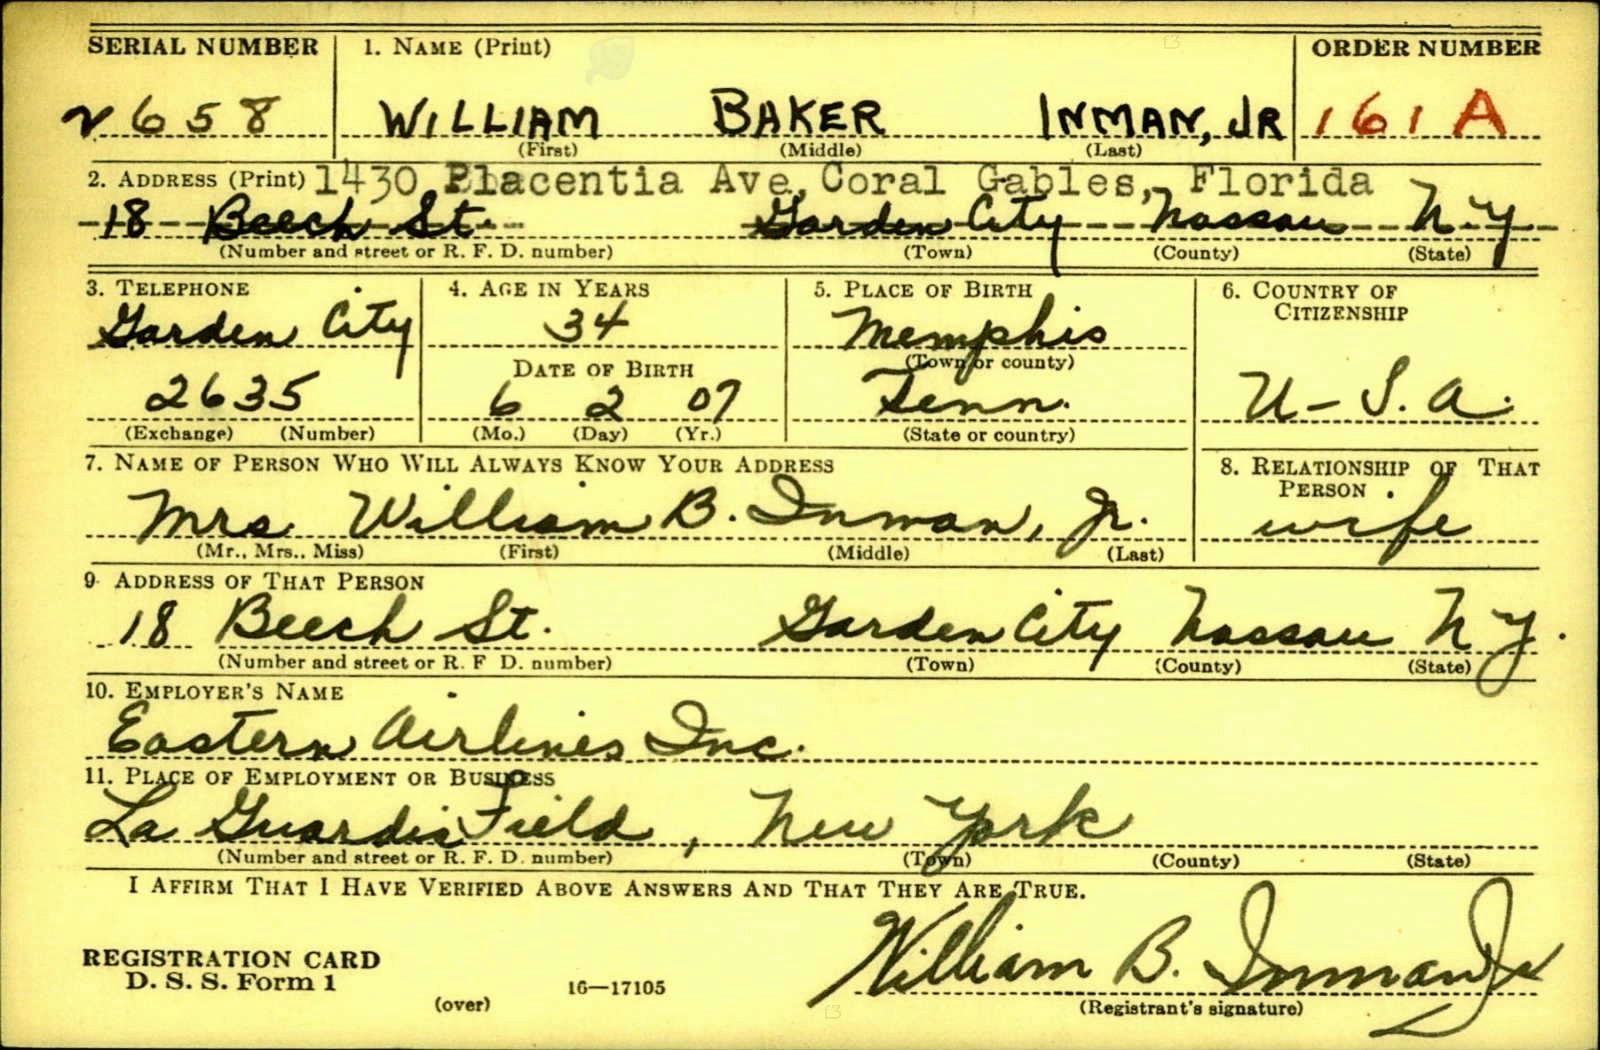 SERIAL NUMBER 1. NAME (Print) ORDER NUMBER
2658 WILLIAM BAKER INMAN, JR 161 A
(First) (Middle) (Last)
2. ADDRESS (Print) 1430 Placentia Ave, Coral Gables, Florida
18 Beech St. Garden City Nassau N.Y
(Number and street or R. F. D. number) (Town) (County) (State)
3. TELEPHONE 4. AGE IN YEARS 5. PLACE OF BIRTH 6. COUNTRY OF CITIZENSHIP
Garden City 34 Memphis
DATE OF BIRTH (Town or county)
2635 6 2 07 Tenn. U-S.A.
(Exchange) (Number) (Mo.) (Day) (Yr.) (State or country)
7. NAME OF PERSON WHO WILL ALWAYS KNOW YOUR ADDRESS 8. RELATIONSHIP OF THAT PERSON
Mrs William B. Inman, Jr. wife
(Mr., Mrs., Miss) (First) (Middle) (Last)
9 ADDRESS OF THAT PERSON
18 Beech St. Garden City Nassau N Y.
(Number and street or R. F D. number) (Town) (County) (State)
10. EMPLOYER'S NAME
Eastern Airlines Inc.
11. PLACE OF EMPLOYMENT OR BUSINESS
La Guardia Field, New York
(Number and street or R. F. D. number) (Town) (County) (State)
I AFFIRM THAT I HAVE VERIFIED ABOVE ANSWERS AND THAT THEY ARE TRUE.
REGISTRATION CARD William B. Inman Jr
D. S. S. Form 1 16—17105
(over) (Registrant's signature)